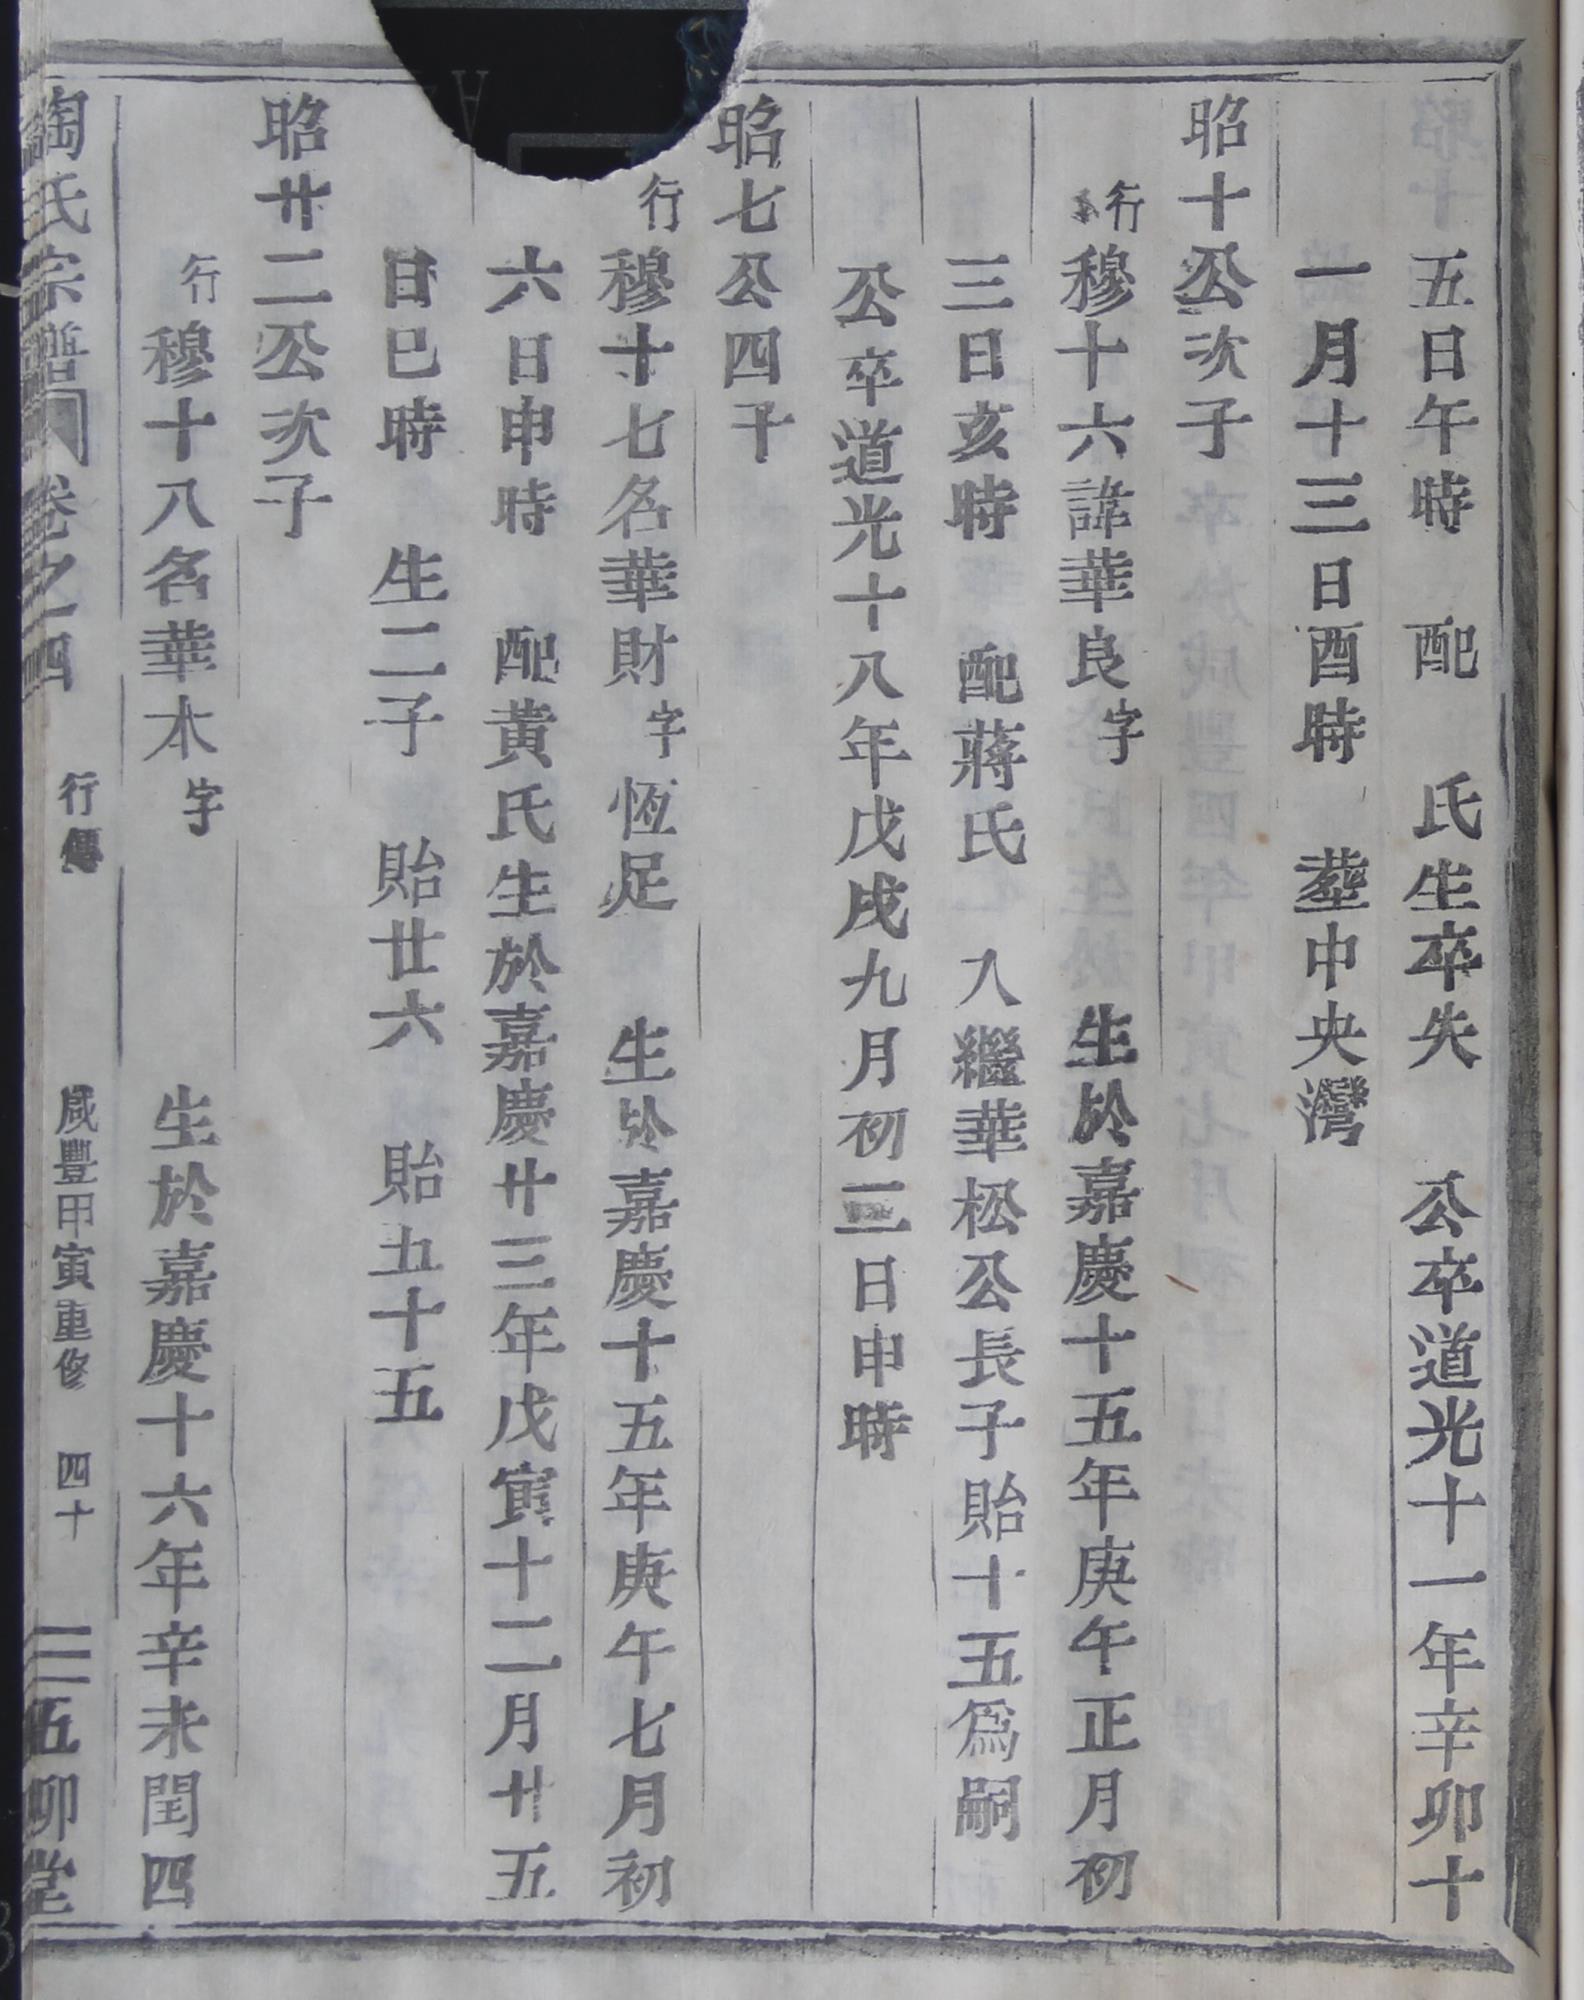 五日午時　配　氏生卒失　公卒道光十一年辛卯十
一月十三日酉時　塟中央灣
昭十公次子
行穆十六諱華良字　生於嘉慶十五年庚午正月初
三日亥時　配蔣氏　入繼華松公長子貽十五為嗣
公卒道光十八年戊戌九月初三日申時
昭七公四子
行穆十七名華財字恆足　生於嘉慶十五年庚午七月初
六日申時　配黄氏生於嘉慶廿三年戊寅十二月廿五
日巳時　生二子　貽廿六　貽五十五
昭廿二公次子
行穆十八名華木字　生於嘉慶十六年辛未閏四
陶氏宗譜　卷之四　行傳　咸豐甲寅重修　四十　五柳堂